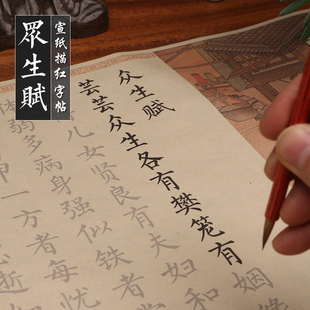 眾生賦
宣纸描红字帖
众生赋
芸芸众生各有樊笼有姻缘
儿女贤良有夫妇和
体弱多病身强似铁者
一方者每忧
逝